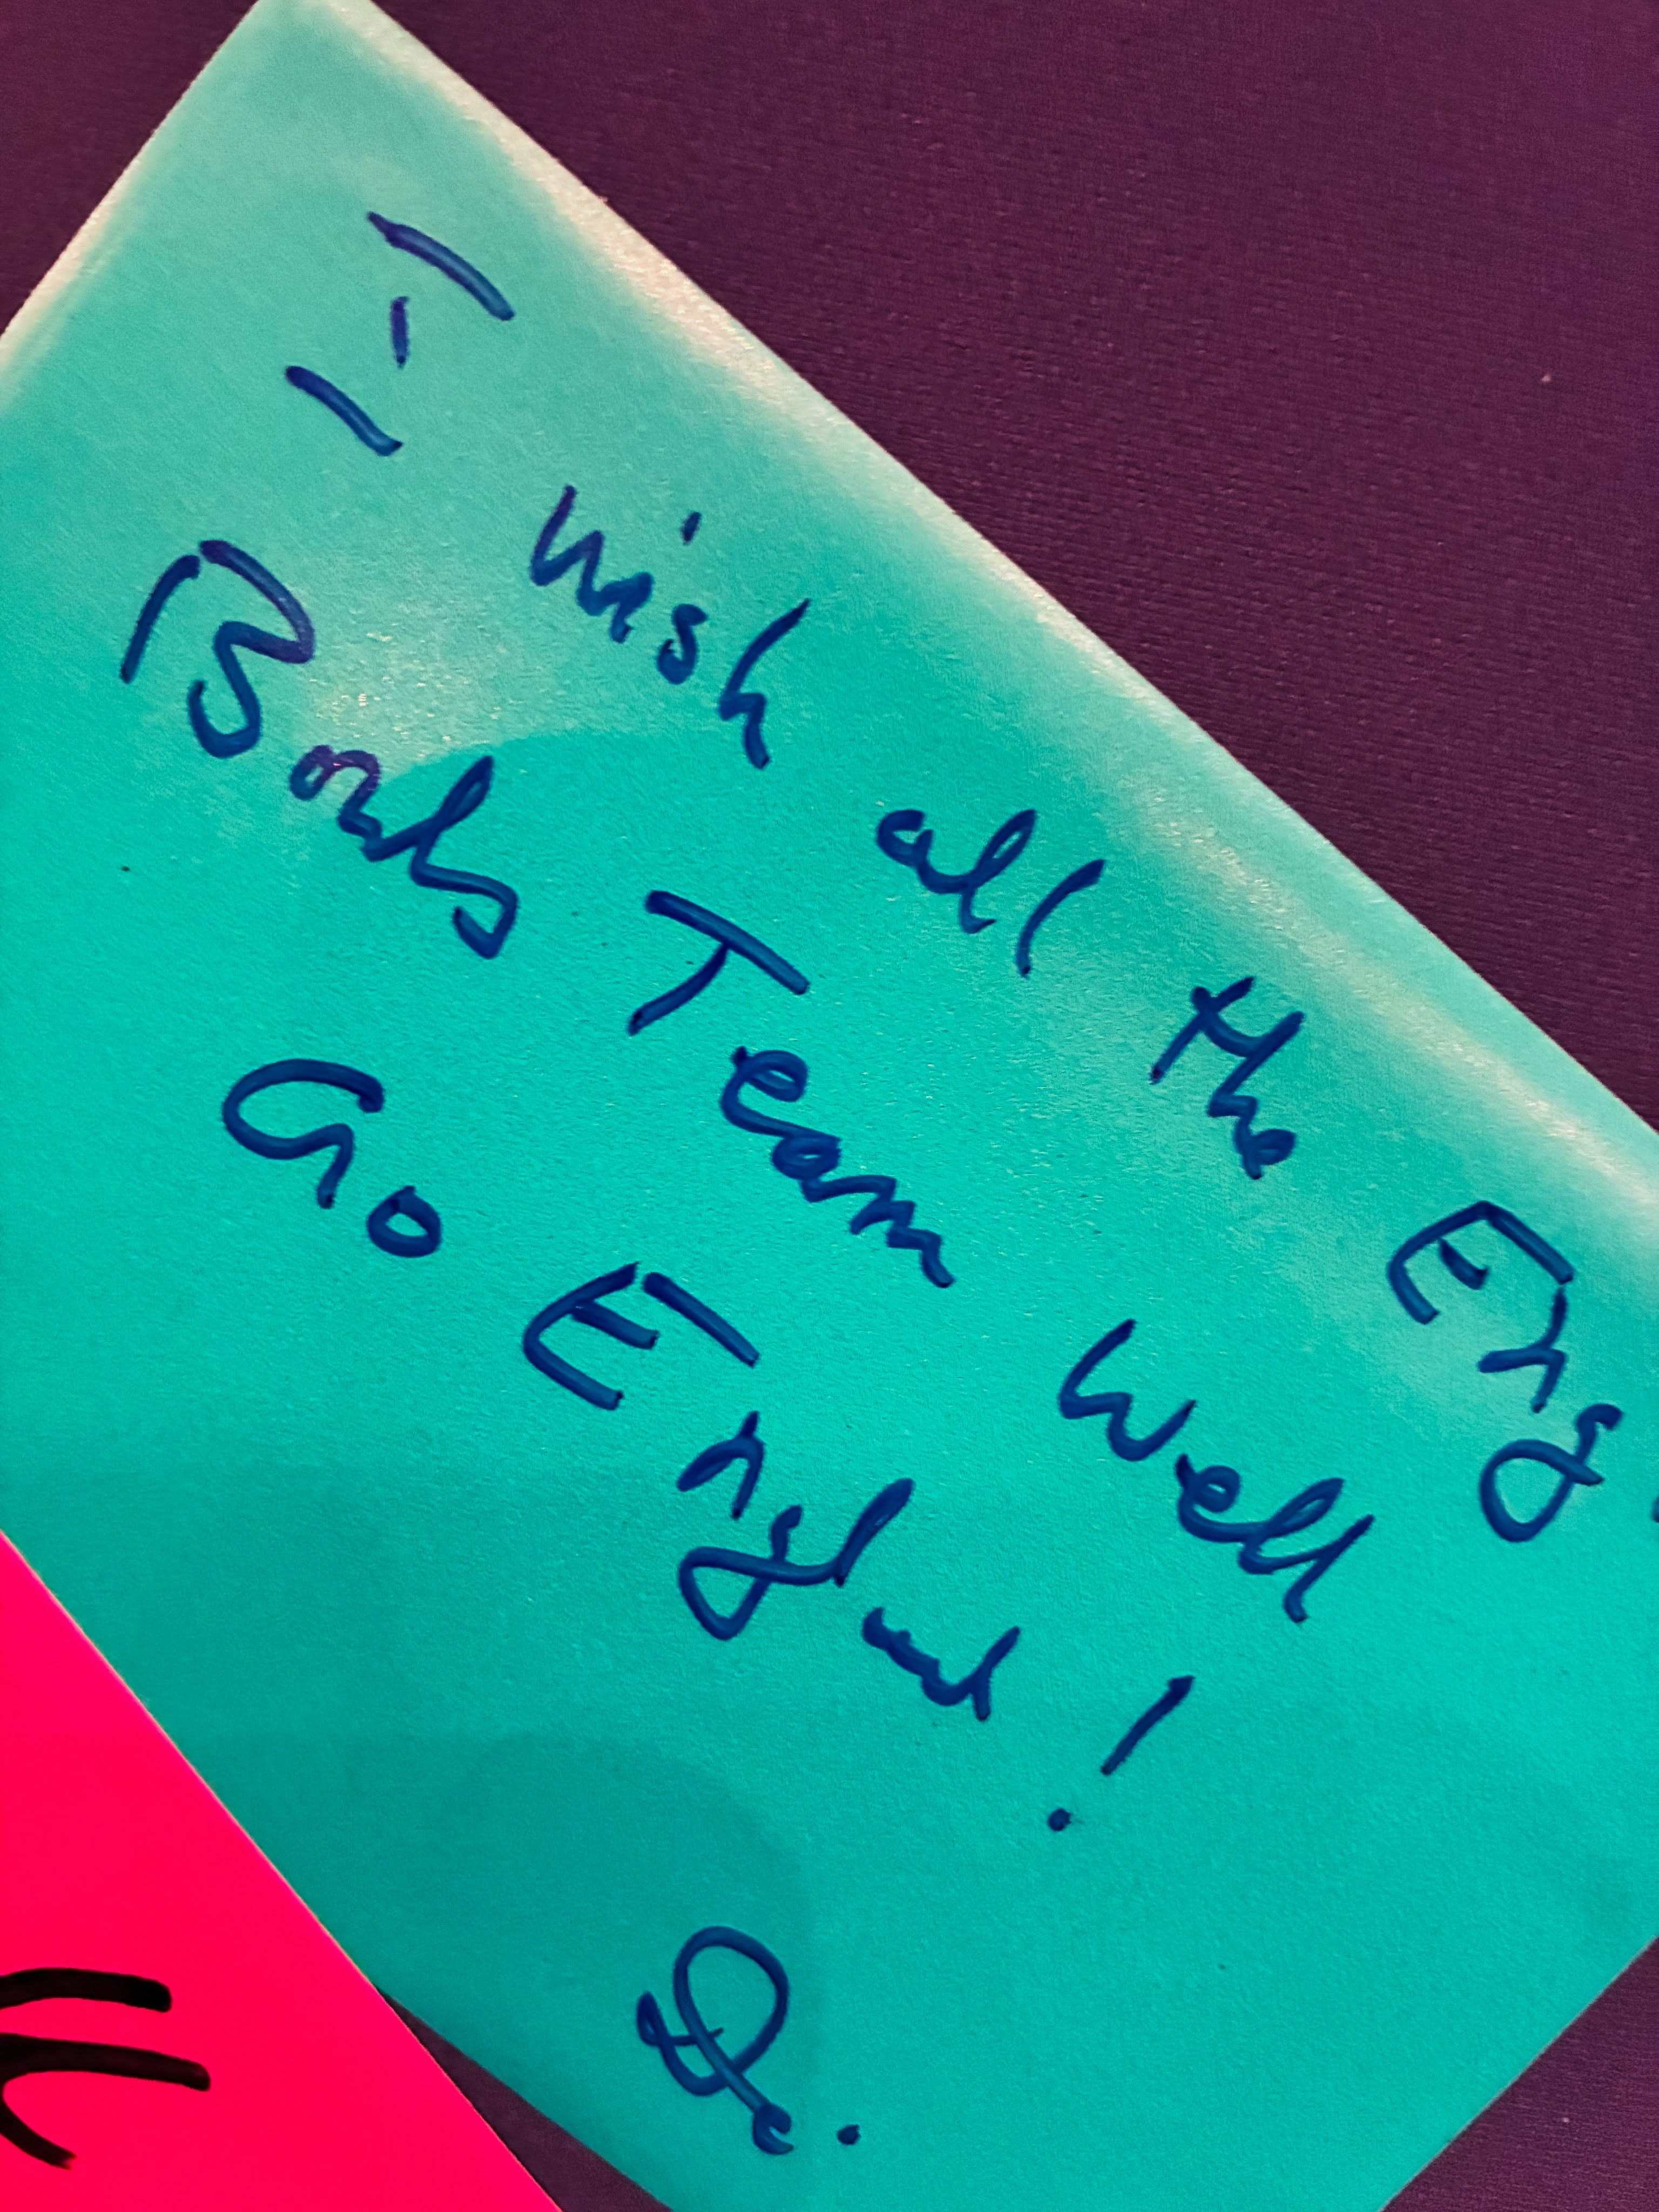 I wish all the Eng
Bowls Team well
Go England!